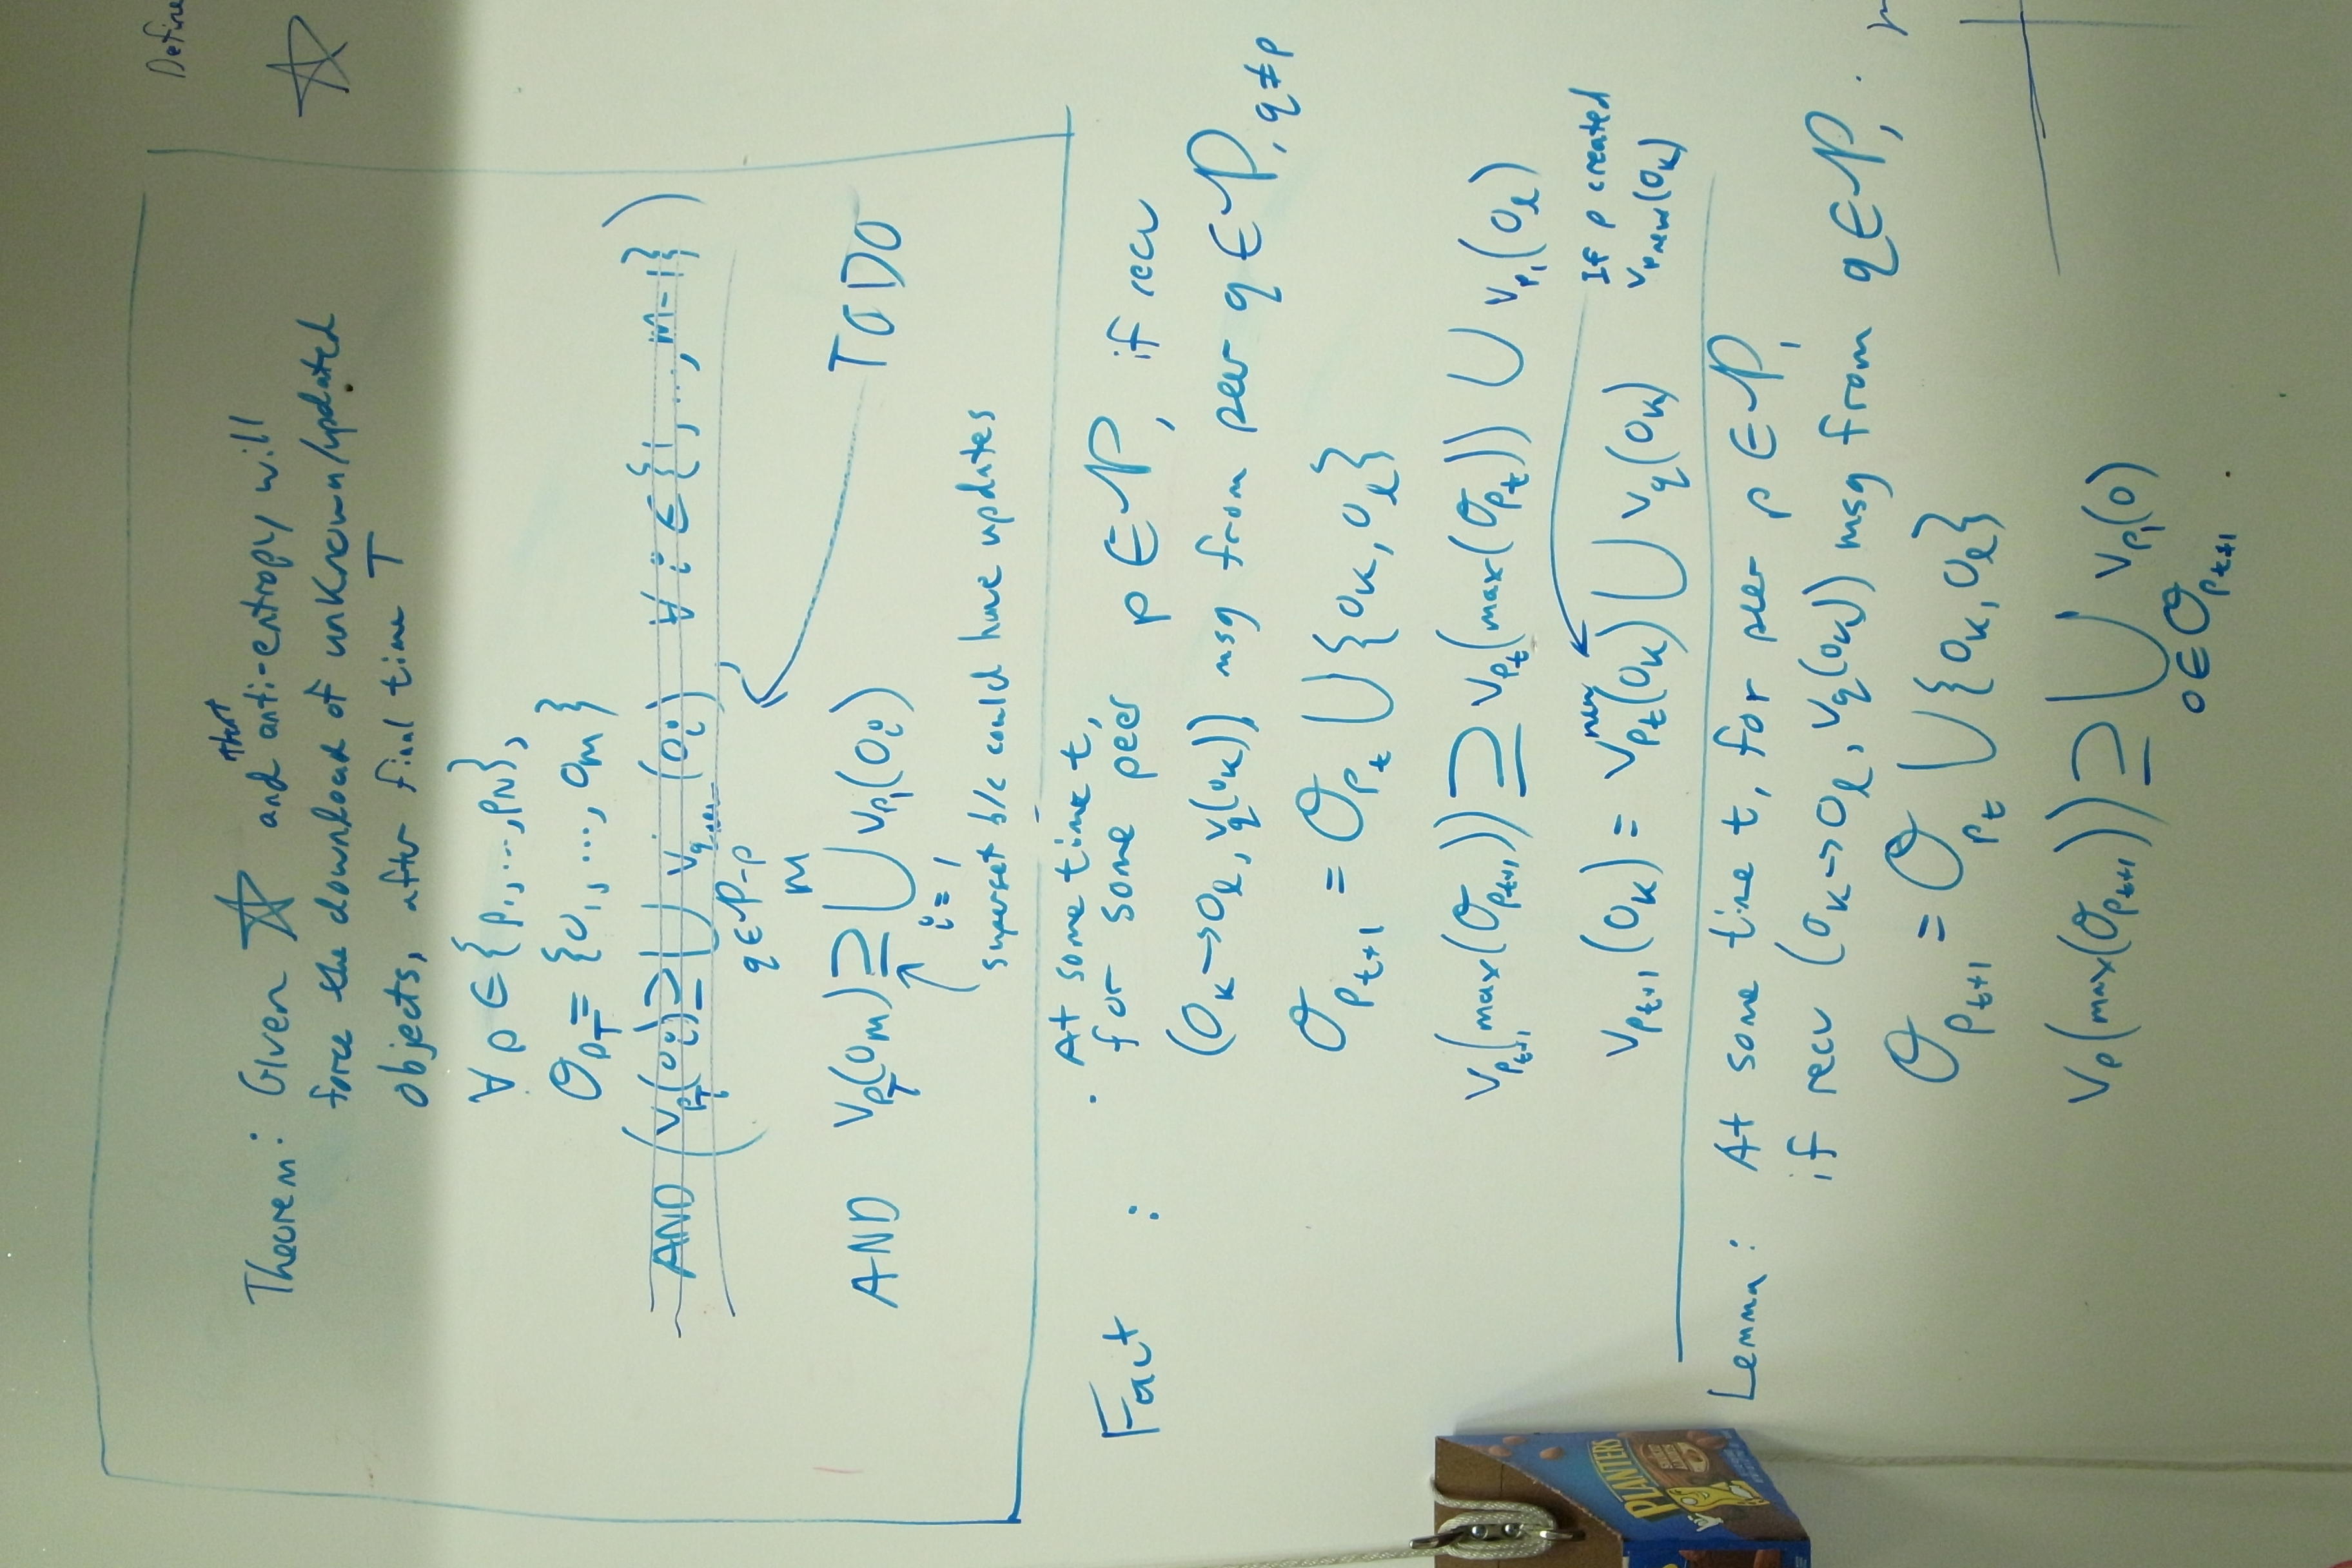 Define
that
Theorem: Given ☆ and anti-entropy will
force the download of unknown/updated
objects, after final time T
∀ p ∈ {p₁, ..., p_N},
O_{p_T} = {o₁, ..., o_m}
AND (v_{p_T}(o_i) ⊇ ⋃_{q∈P-p} v_q (o_i), ∀ i ∈ {1, ..., m-1})
AND v_{p_T}(o_m) ⊇ ⋃_{i=1}^{m} v_{p_1}(o_i)
TODO
superset b/c could have updates
At some time t,
Fact : for some peer p ∈ P, if recv
(o_k → o_l, v_q(o_k)) msg from peer q ∈ P, q ≠ p
O_{p_{t+1}} = O_{p_t} ⋃ {o_k, o_l}
v_{p_{t+1}}(max(O_{p_{t+1}})) ⊇ v_{p_t}(max(O_{p_t})) ⋃ v_{p_1}(o_l)
v_{p_{t+1}}(o_k) = v_{p_t}^{new}(o_k) ⋃ v_q(o_k)
If p created
v_{p new}(o_k)
Lemma: At some time t, for peer p ∈ P,
if recv (o_k → o_l, v_q(o_k)) msg from q ∈ P,
O_{p_{t+1}} = O_{p_t} ⋃ {o_k, o_l}
v_p(max(O_{p_{t+1}})) ⊇ ⋃_{o∈O_{p_{t+1}}} v_{p_1}(o)
PLANTERS
SMOKED
ALMONDS